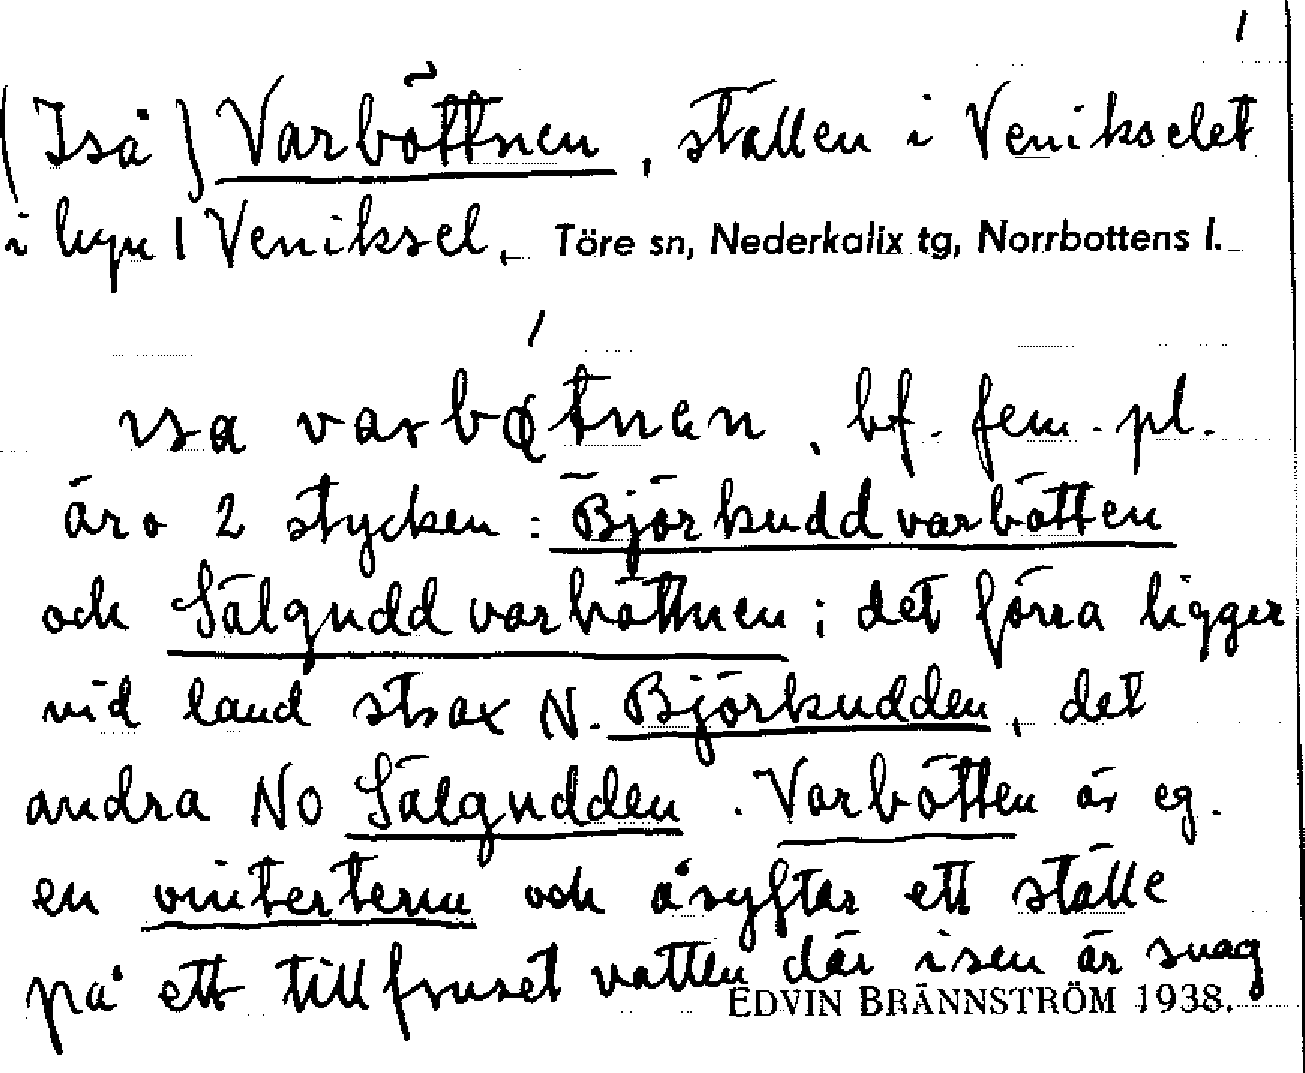 1
(Iså) Varböttnen, ställen i Venikselet
i byn 1 Veniksel, Töre sn, Nederkalix tg, Norrbottens l.
ɩsa varbǿtnen, bf. fem. pl.
äro 2 stycken: Björkuddvarbötten
och Sälguddvarböttnen; det förra ligger
vid land strax N. Björkudden, det
andra NO Sälgudden. Varbötten är eg.
en vinterterm och åsyftar ett ställe
på ett tillfruset vatten där isen är svag
EDVIN BRÄNNSTRÖM 1938.